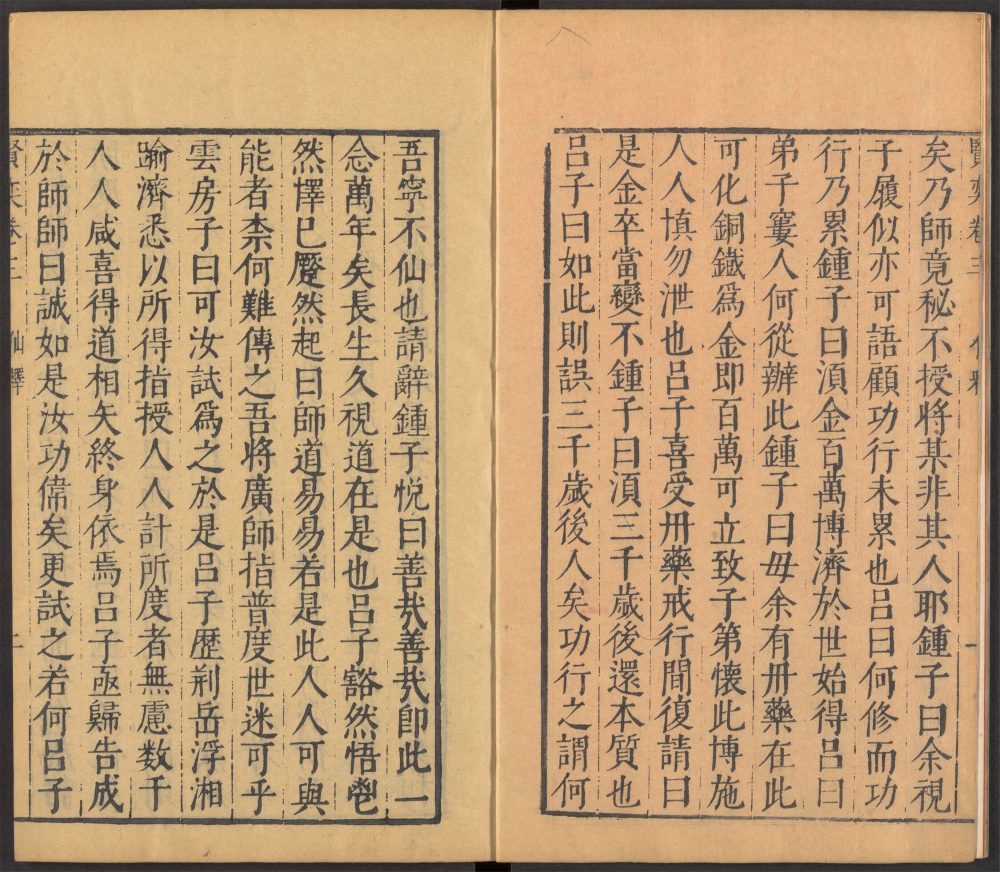 矣乃師竟秘不授將某非其人耶鍾子曰余視
子履似亦可語顧功行未累也呂曰何修而功
行乃累鍾子曰湏金百萬博濟於世始得呂曰
弟子窶人何從辦此鍾子曰毋余有丹藥在此
可化銅鐵為金即百萬可立致子第懷此博施
人人慎勿泄也呂子喜受丹藥戒行間復請曰
是金卒當變不鍾子曰湏三千歲後還本質也
呂子曰如此則誤三千歲後人矣功行之謂何
吾寧不仙也請辭鍾子悅曰善哉善哉即此一
念萬年矣長生久視道在是也呂子豁然悟鬯
然懌已蹷然起曰師道易易若是此人人可與
能者柰何難傳之吾將廣師指普度世迷可乎
雲房子曰可汝試為之於是呂子歷荊岳浮湘
踰濟悉以所得指授人人計所度者無慮数千
人人咸喜得道相矢終身依焉呂子亟歸告成
於師師曰誠如是汝功偉矣更試之若何呂子